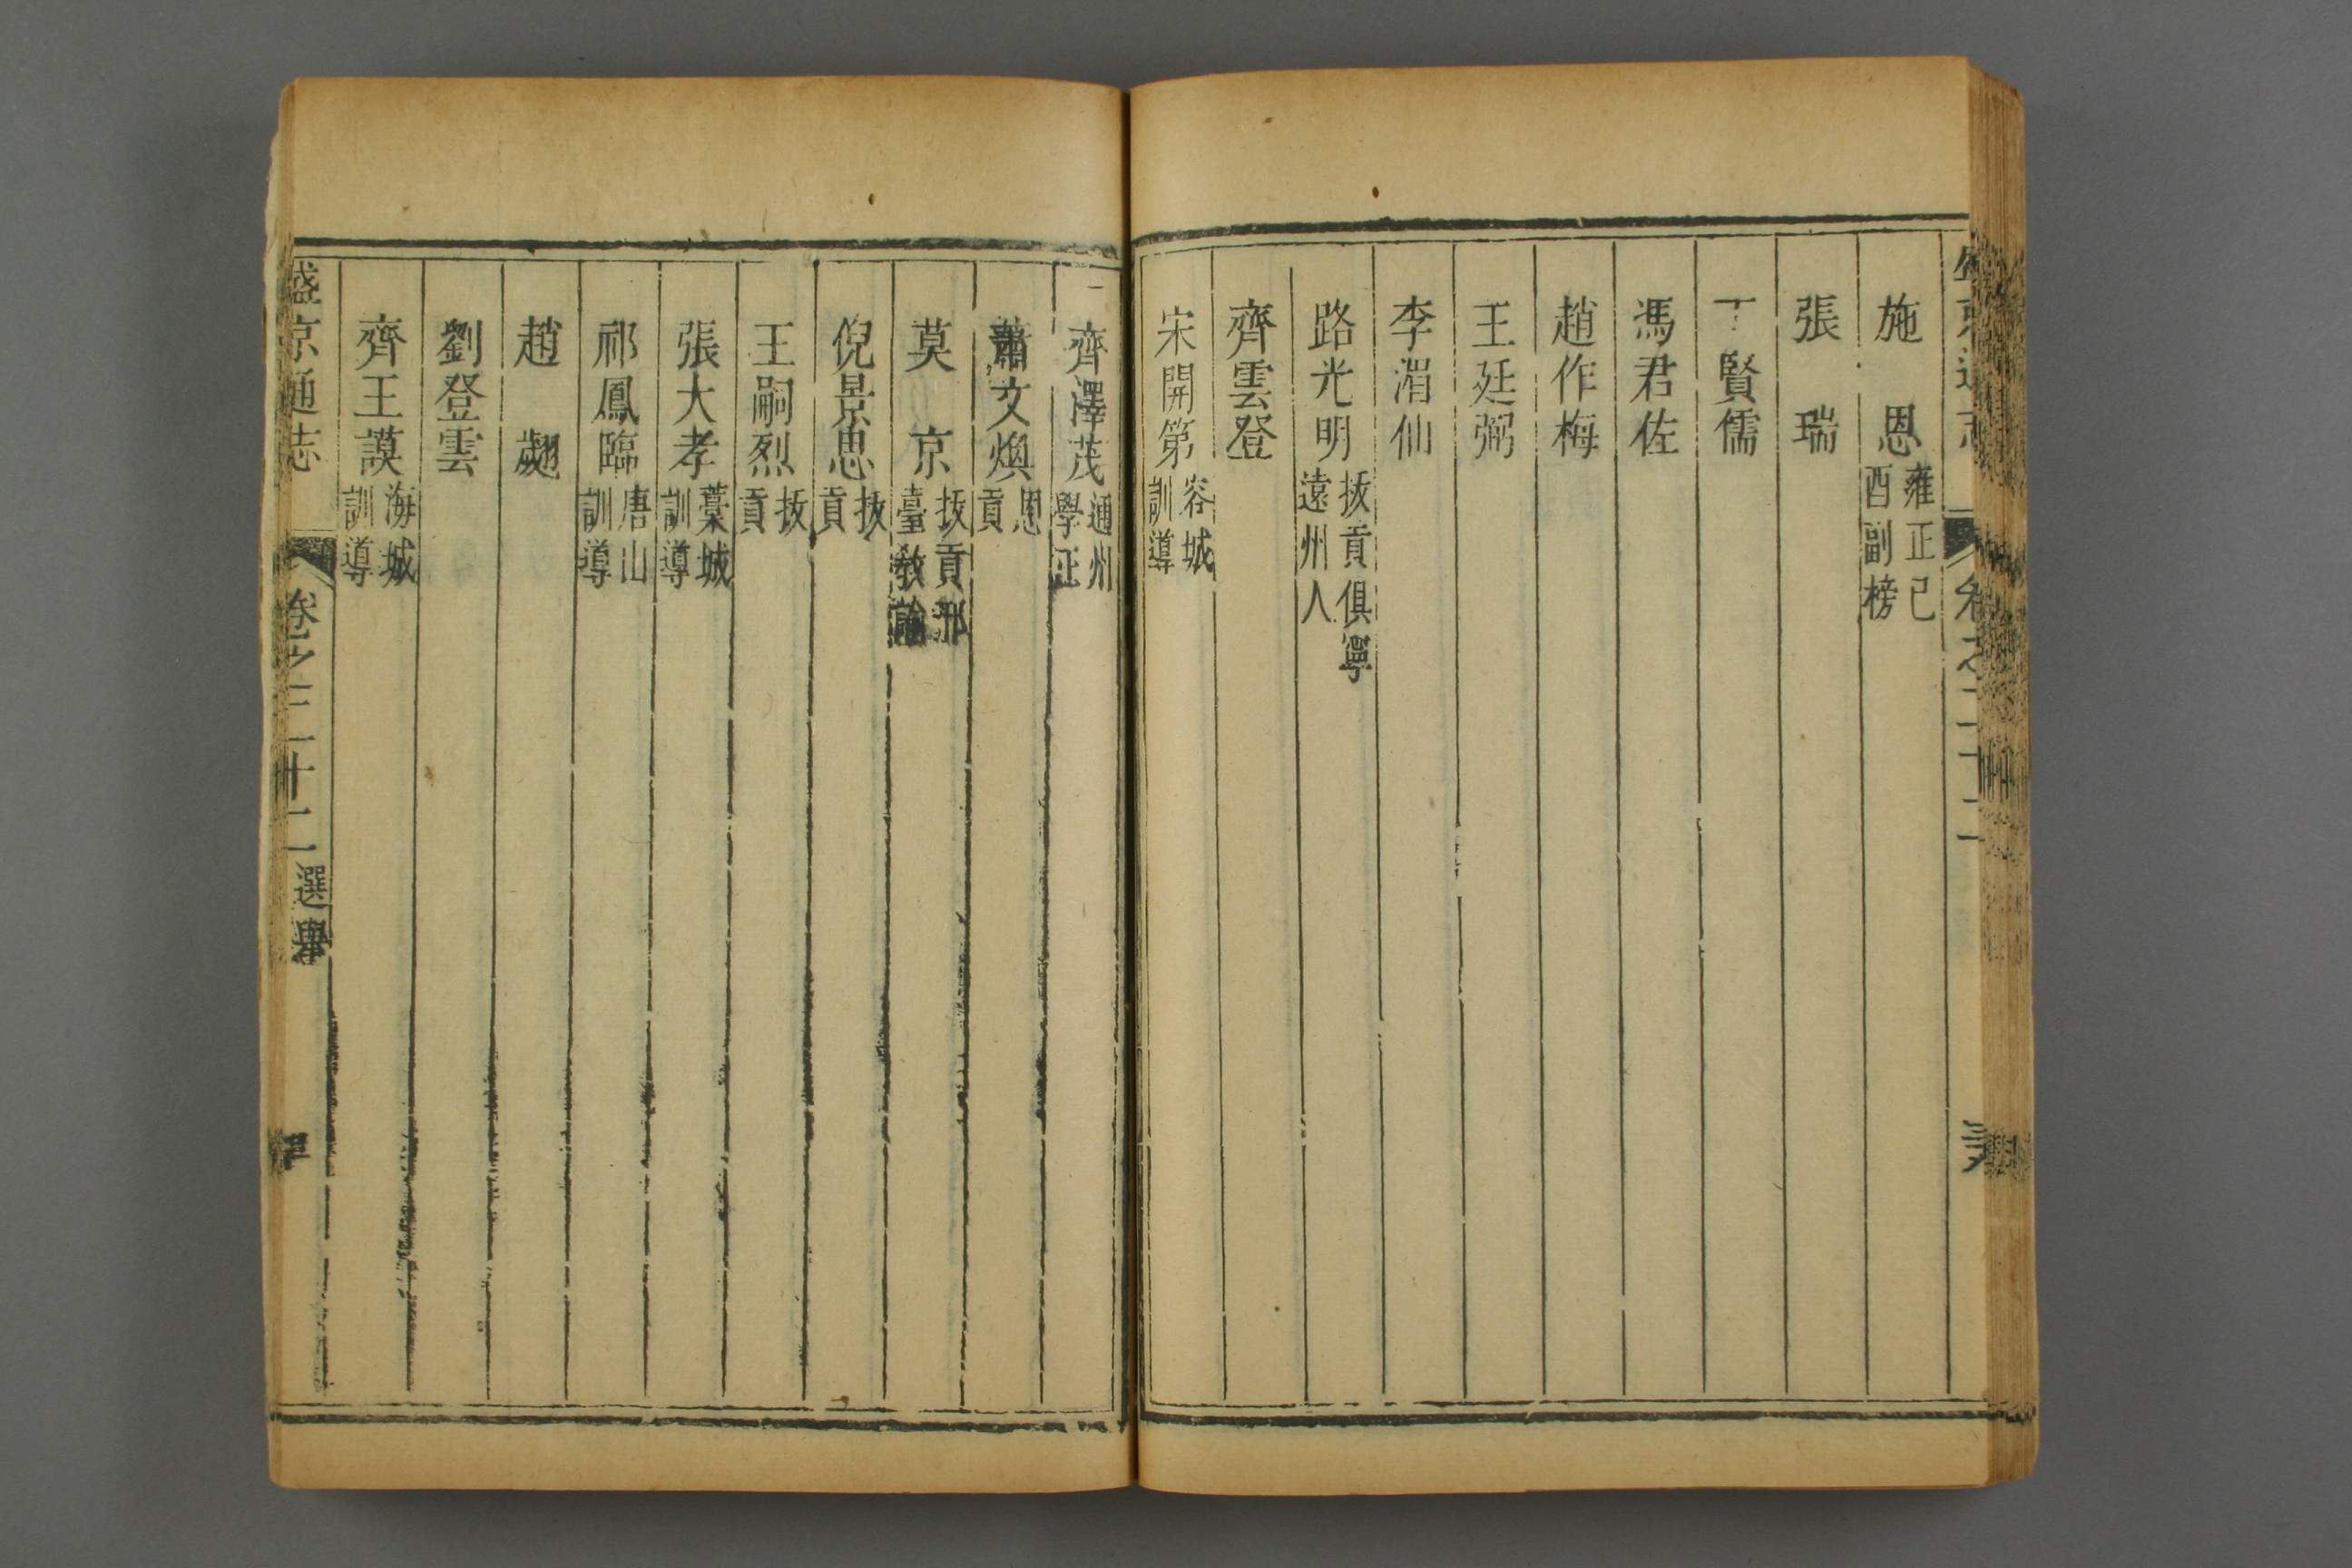 施恩雍正己酉副榜
張瑞
丁賢儒
馮君佐
趙作梅
王廷弼
李湄仙
路光明拔貢俱寧遠州人
齊雲登
宋開第容城訓導
齊澤茂通州學正
蕭文煥恩貢
莫京拔貢邢臺教諭
倪景思拔貢
王嗣烈拔貢
張大孝藁城訓導
祁鳳臨唐山訓導
趙
劉登雲
齊王謨海城訓導
盛京通志 卷之三十二 選舉